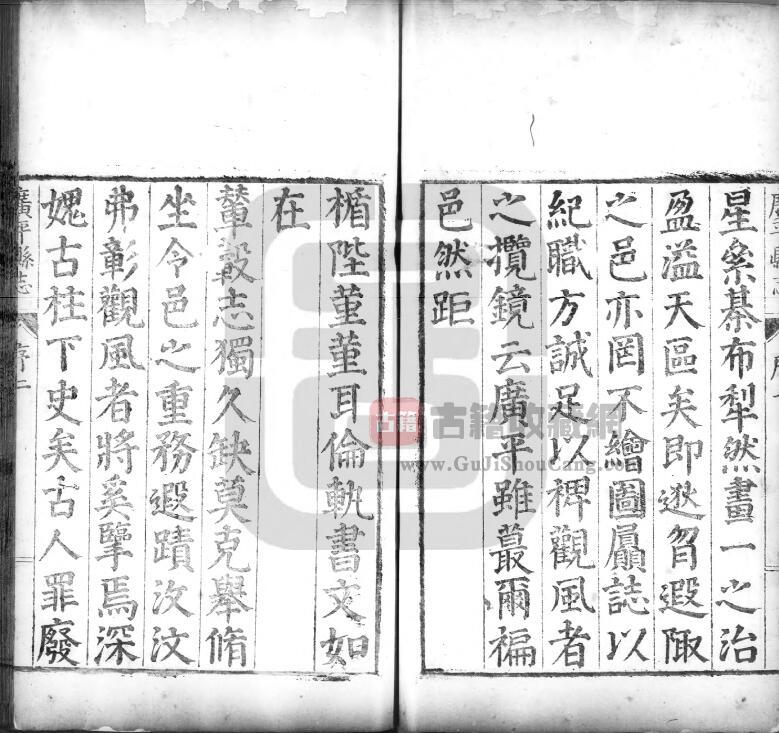 星參棊布犁然畫一之治
盈溢天區矣即逖曶遐陬
之邑亦罔不繪圖屭誌以
紀職方誠足以稗觀風者
之攬鏡云廣平雖蕞爾褊
邑然距
楯陛董董耳倫軌書文如
在
輦轂志獨久缺莫克舉脩
坐令邑之重務遐蹟汶汶
弗彰觀風者將奚擥焉深
媿古柱下史矣古人罪廢
廣平縣志
序二
古籍
古籍收藏網
www.GuJiShouCang.com